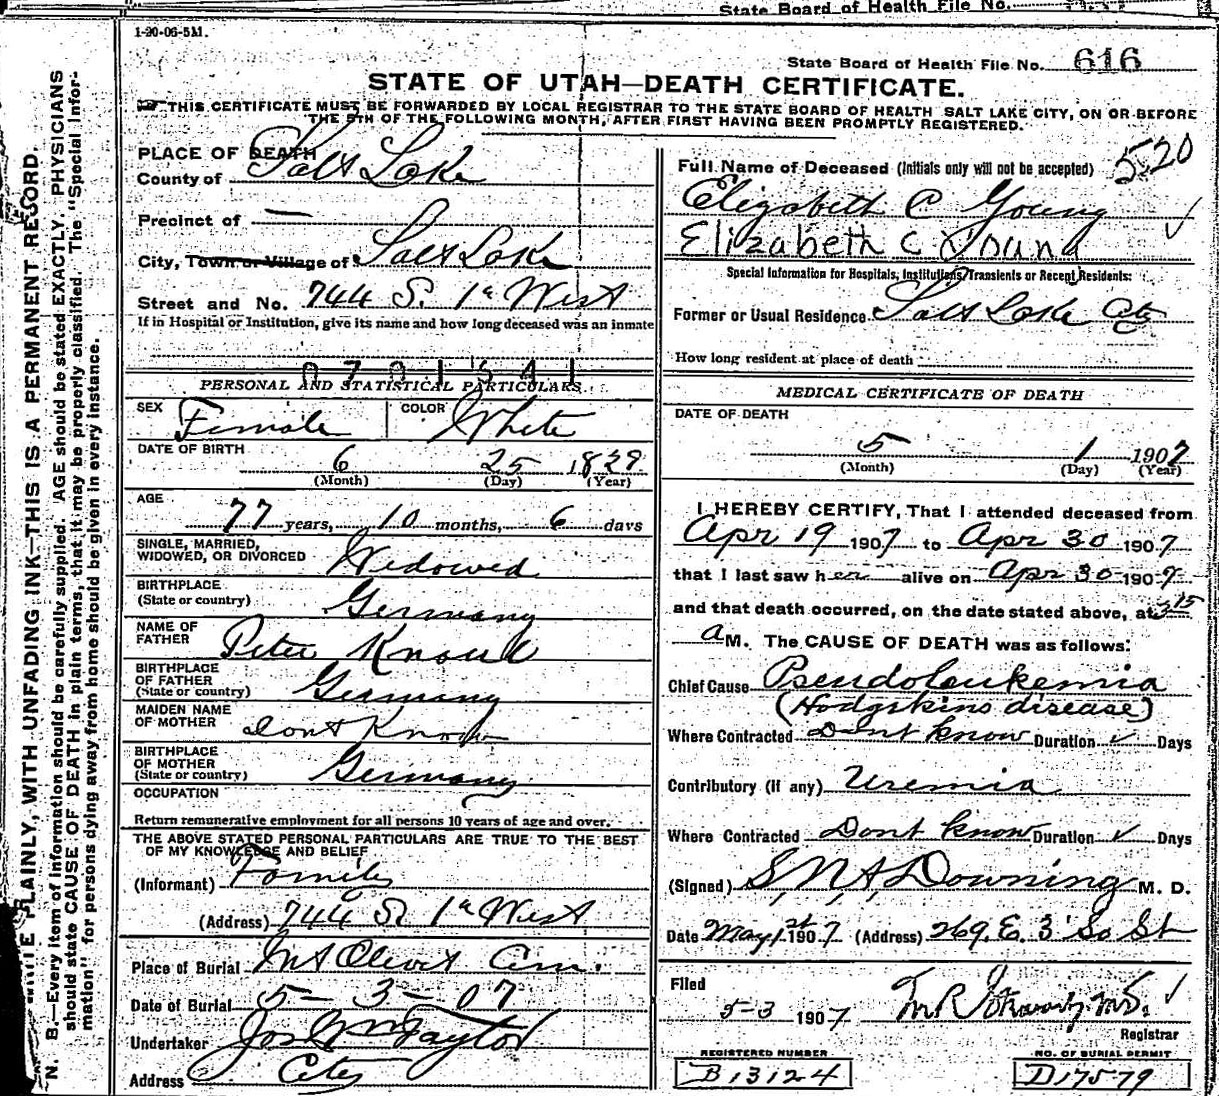 State Board of Health File No.
1-20-06-5M.
State Board of Health File No. 616
STATE OF UTAH—DEATH CERTIFICATE.
THIS CERTIFICATE MUST BE FORWARDED BY LOCAL REGISTRAR TO THE STATE BOARD OF HEALTH SALT LAKE CITY, ON OR BEFORE
THE 5TH OF THE FOLLOWING MONTH, AFTER FIRST HAVING BEEN PROMPTLY REGISTERED.
PLAINLY, WITH UNFADING INK—THIS IS A PERMANENT RECORD.
N. B.—Every item of information should be carefully supplied. AGE should be stated EXACTLY. PHYSICIANS
should state CAUSE OF DEATH in plain terms, that it may be properly classified. The "Special Infor-
mation" for persons dying away from home should be given in every instance.
PLACE OF DEATH
County of Salt Lake
Precinct of —
City, Town or Village of Salt Lake
Street and No. 744 S. 1st West
If in Hospital or Institution, give its name and how long deceased was an inmate
0701541
PERSONAL AND STATISTICAL PARTICULARS.
SEX Female COLOR White
DATE OF BIRTH
6 25 1829
(Month) (Day) (Year)
AGE
77 years, 10 months, 6 days
SINGLE, MARRIED,
WIDOWED, OR DIVORCED Widowed
BIRTHPLACE
(State or country) Germany
NAME OF
FATHER Peter
BIRTHPLACE
OF FATHER
(State or country) Germany
MAIDEN NAME
OF MOTHER Dont Know
BIRTHPLACE
OF MOTHER
(State or country) Germany
OCCUPATION
Return remunerative employment for all persons 10 years of age and over.
THE ABOVE STATED PERSONAL PARTICULARS ARE TRUE TO THE BEST
OF MY KNOWLEDGE AND BELIEF
(Informant) Family
(Address) 744 S. 1st West
Place of Burial Mt Olivet Cem.
Date of Burial 5-3-07
Undertaker Jos Wm Taylor
Address City
Full Name of Deceased (Initials only will not be accepted) 520
Elizabeth C Young
Elizabeth C Young
Special Information for Hospitals, Institutions, Transients or Recent Residents:
Former or Usual Residence Salt Lake City
How long resident at place of death
MEDICAL CERTIFICATE OF DEATH
DATE OF DEATH
5 1 1907
(Month) (Day) (Year)
I HEREBY CERTIFY, That I attended deceased from
Apr 19 1907 to Apr 30 1907
that I last saw her alive on Apr 30 1907
and that death occurred, on the date stated above, at 3 15
a M. The CAUSE OF DEATH was as follows:
Chief Cause Pseudoleukemia
(Hodgskins disease)
Where Contracted Dont know Duration ✓ Days
Contributory (if any) Uremia
Where Contracted Dont know Duration ✓ Days
(Signed) S, N, A, Downing M. D.
Date May 1st 1907 (Address) 269. E. 3 So St
Filed
5-3 1907
Registrar
REGISTERED NUMBER
B 13124
NO. OF BURIAL PERMIT
D17579